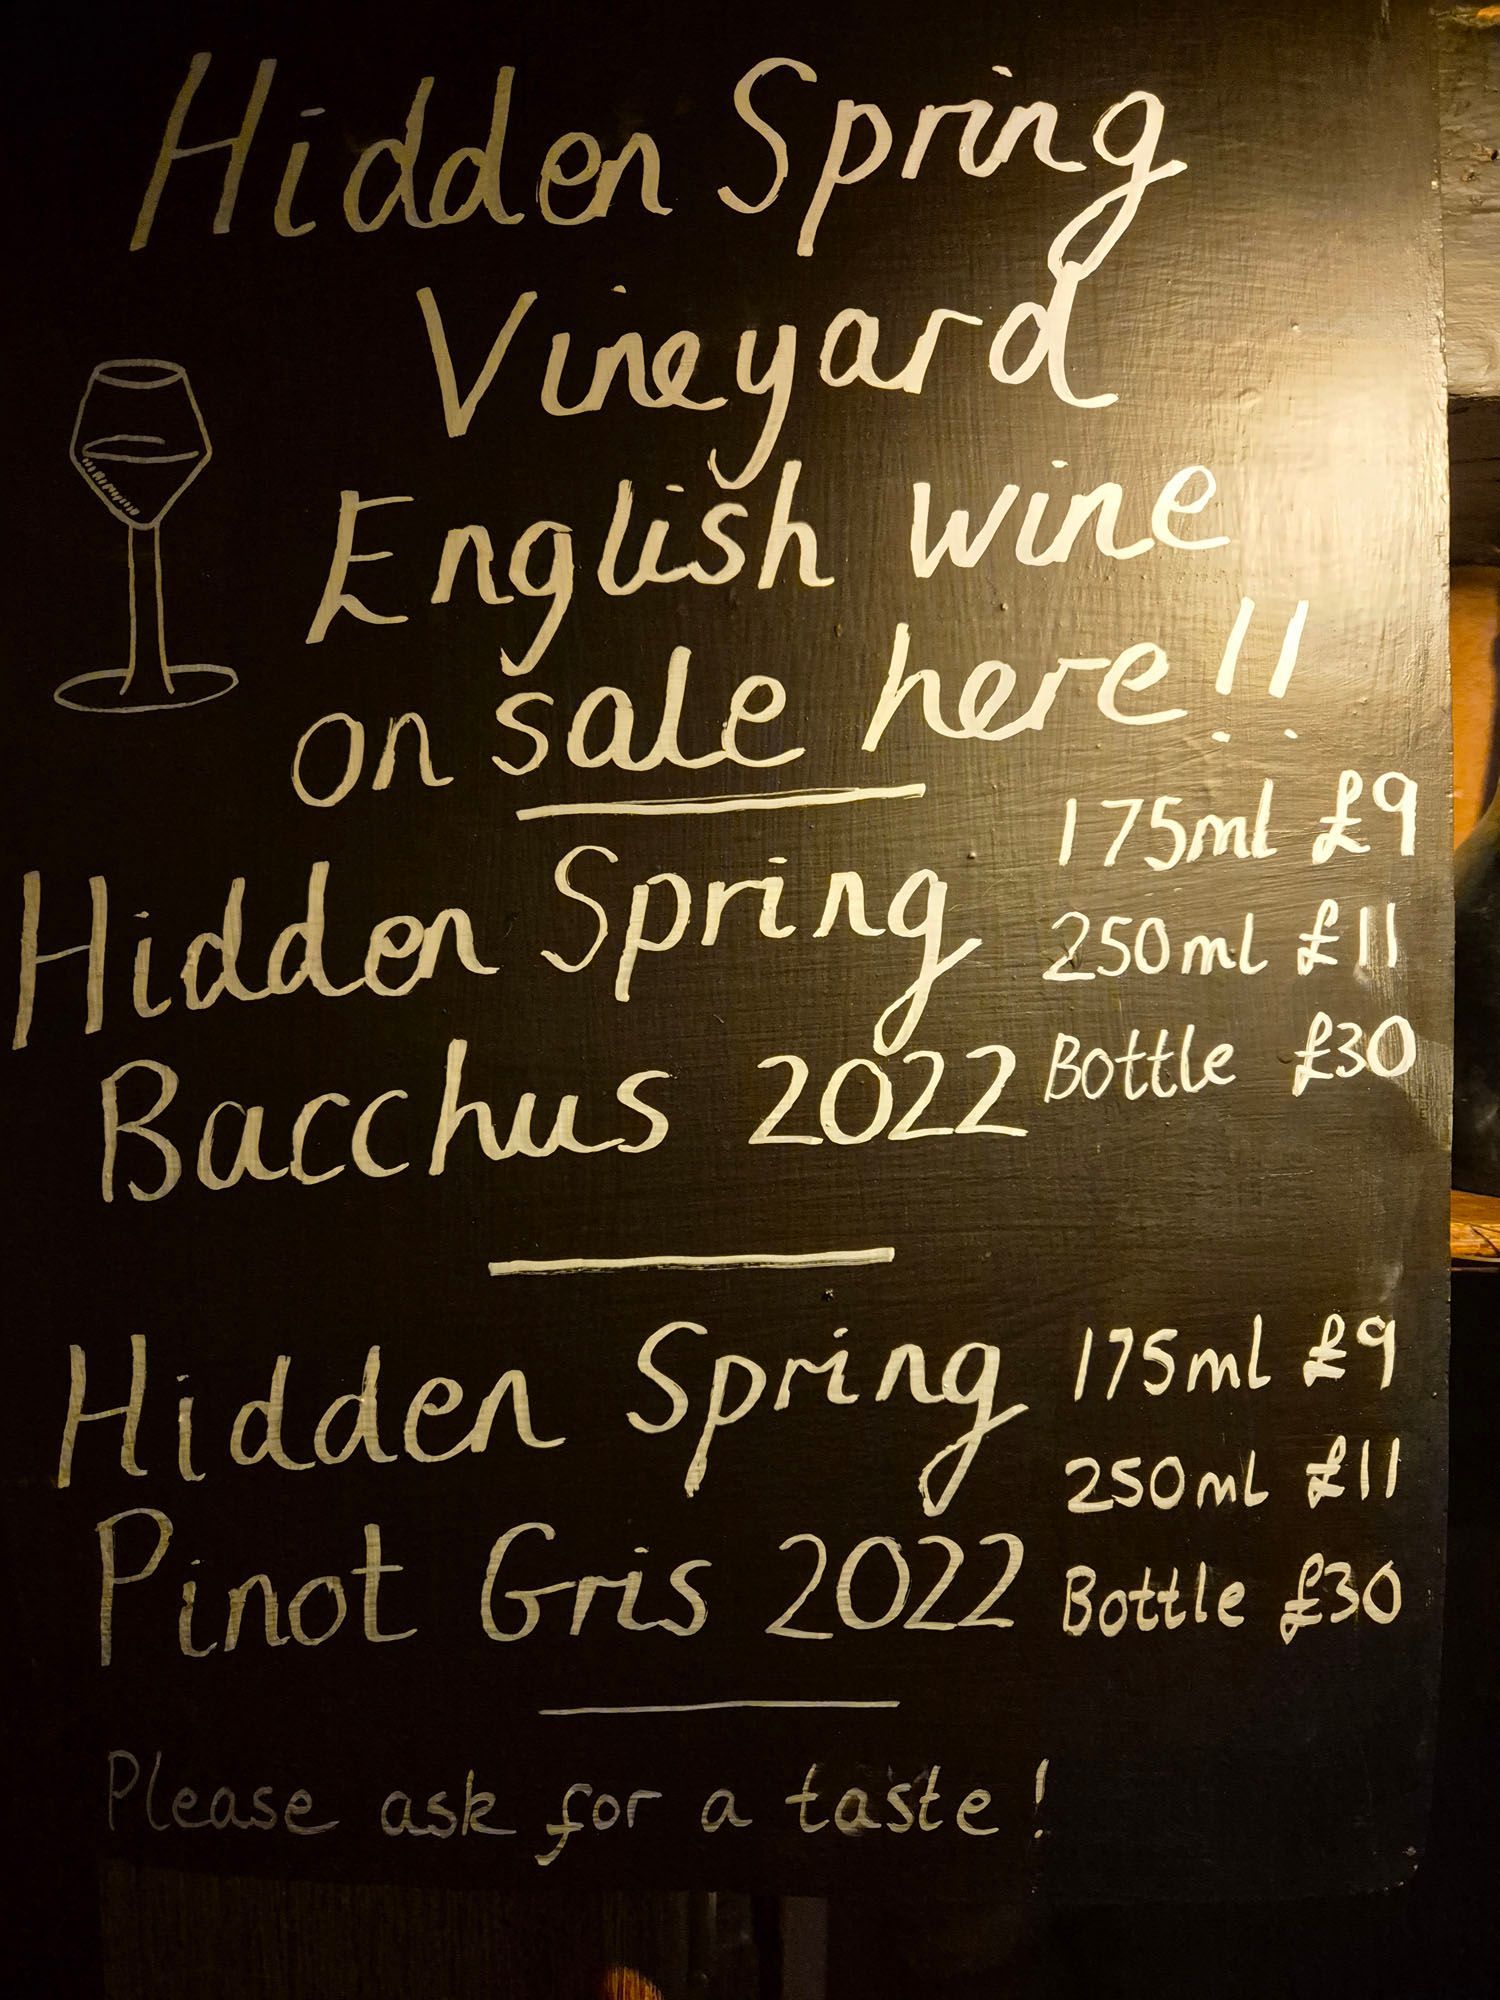 Hidden Spring
Vineyard
English wine
on sale here!!
175ml £9
Hidden Spring 250ml £11
Bacchus 2022 Bottle £30
Hidden Spring 175ml £9
250ml £11
Pinot Gris 2022 Bottle £30
Please ask for a taste!